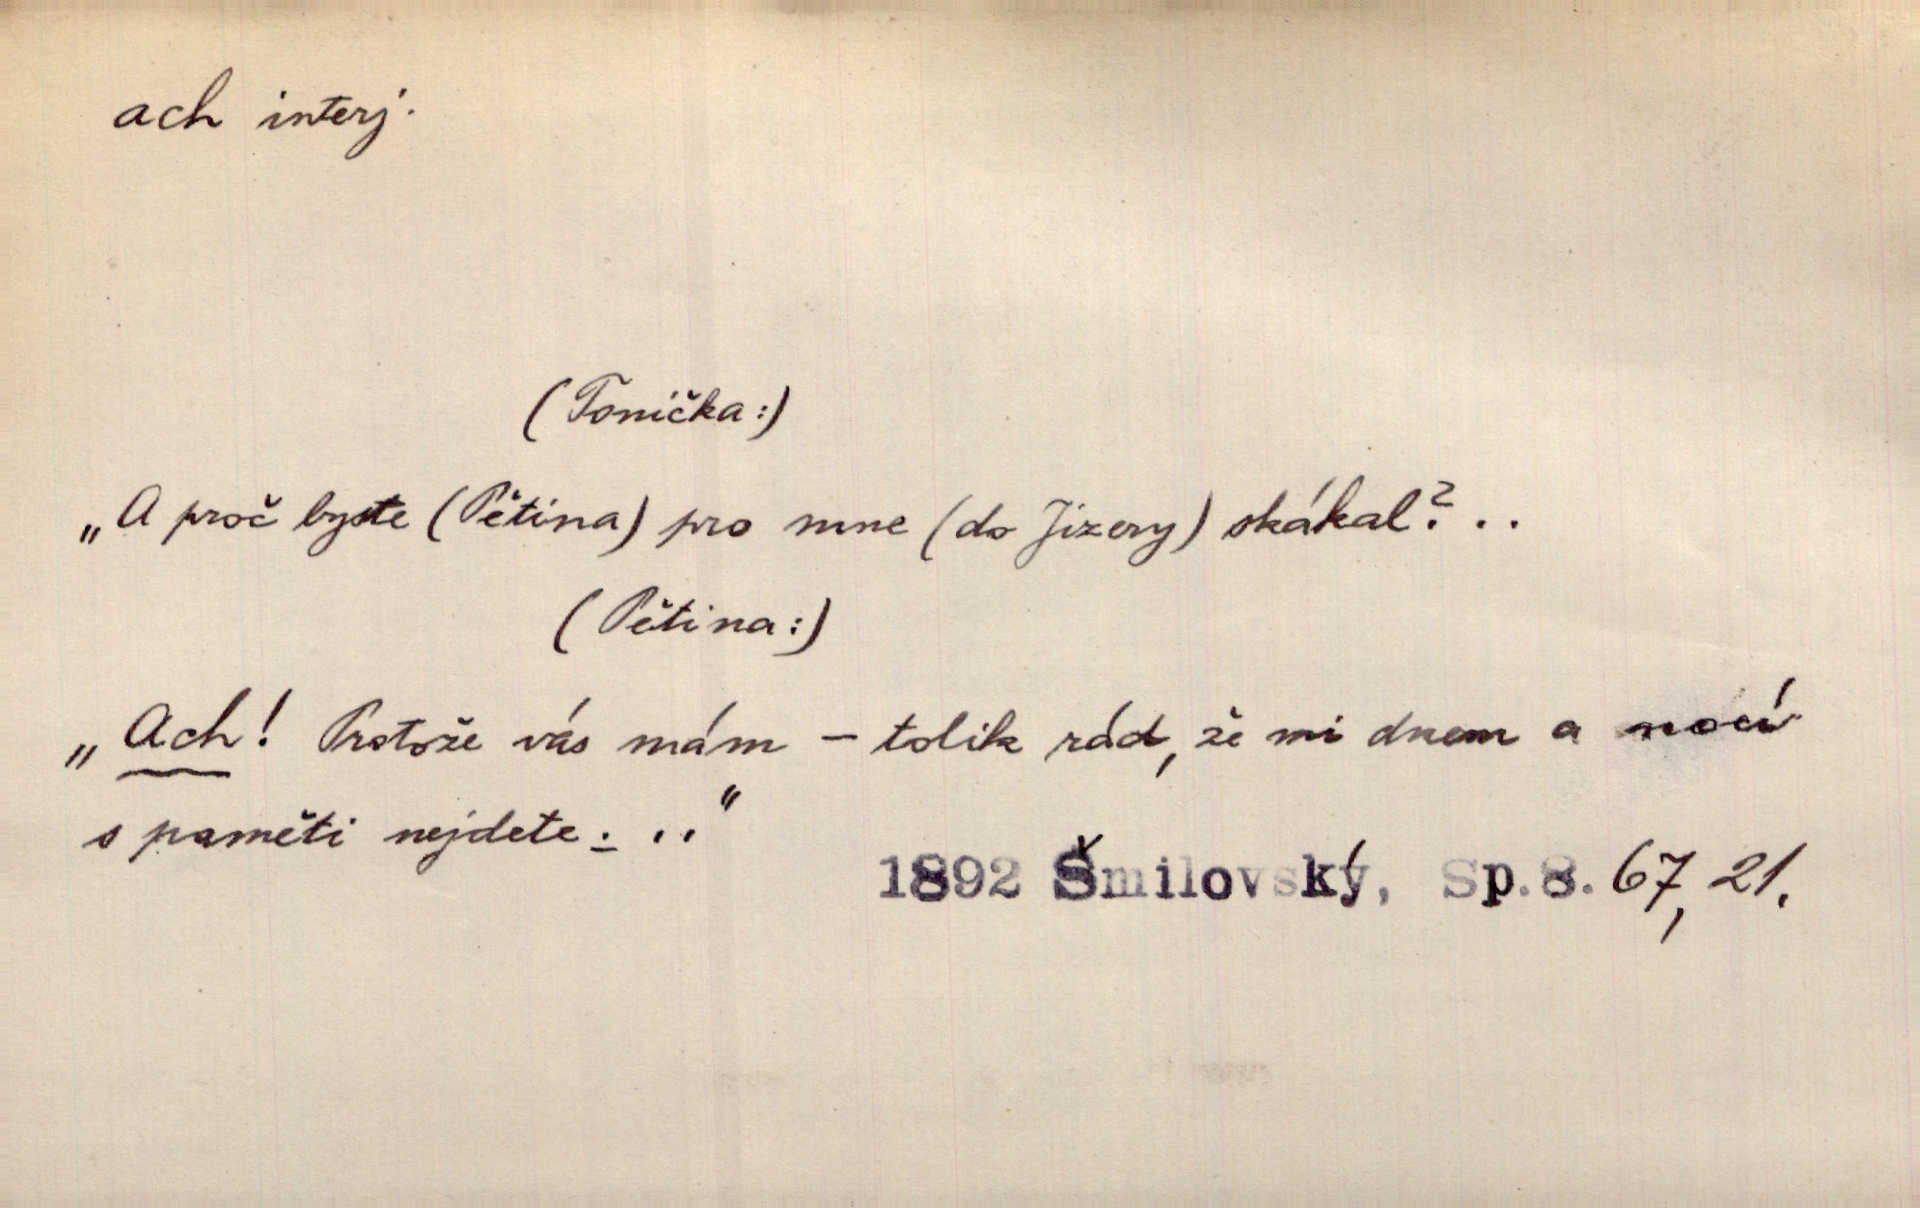 ach interj.
(Tonička:)
„A proč byste (Pětina) pro mne (do Jizery) skákal? . .
(Pětina:)
„Ach! Protože vás mám – tolik rád, že mi dnem a nocí
s paměti nejdete. . ."
1892 Šmilovský, Sp.8. 67, 21.